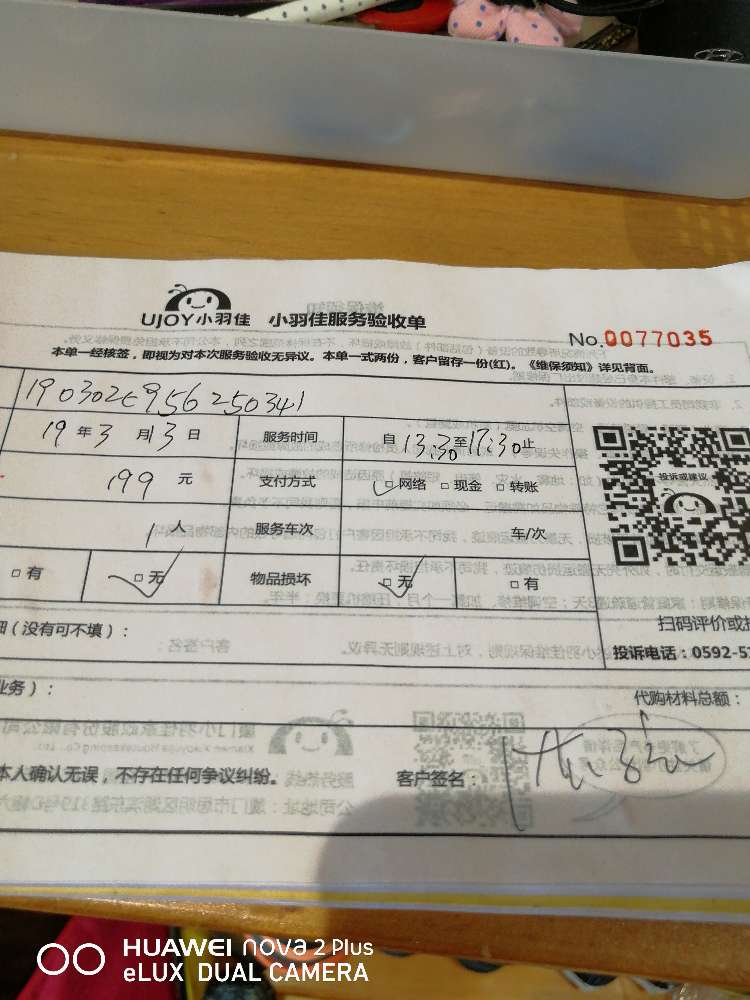 UJOY小羽佳 小羽佳服务验收单
No.0077035
本单一经核签，即视为对本次服务验收无异议。本单一式两份，客户留存一份(红)。《维保须知》详见背面。
19年3月13日 服务时间 自13:30至17:30止
199元 支付方式 网络 现金 转账
投诉或建议
1人 服务车次 车/次
有 无 物品损坏 无 有
(没有可不填)：
扫码评价或
投诉电话：0592-5
业务)：
代购材料总额：
本人确认无误，不存在任何争议纠纷。 客户签名：
HUAWEI nova 2 Plus
eLUX DUAL CAMERA